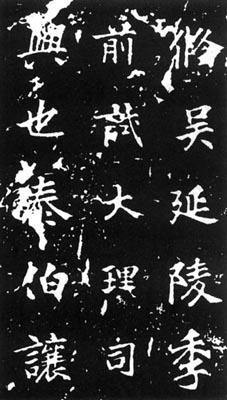 吴延陵季
前哉大理司
也泰伯讓